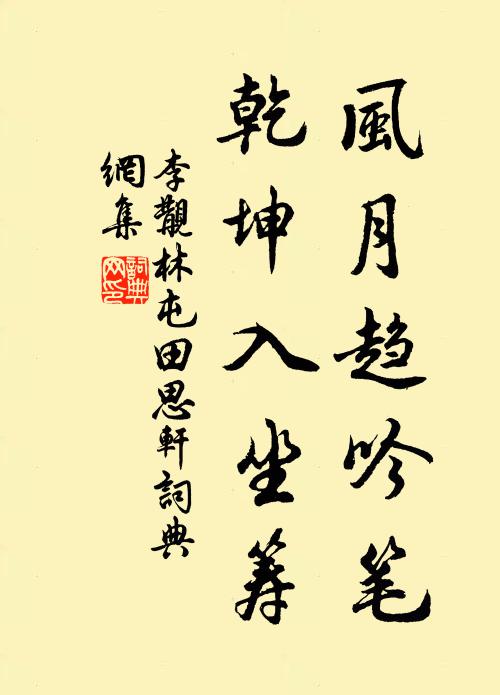 風月趋吟笔
乾坤入坐筹
李觀林屯田思軒詞典
網集
詞典
网印